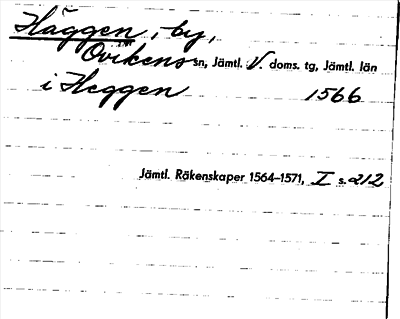 Häggen, by,
Ovikens sn, Jämtl. V. doms. tg, Jämtl. län
i Heggen 1566
Jämtl. Räkenskaper 1564–1571, I s. 212